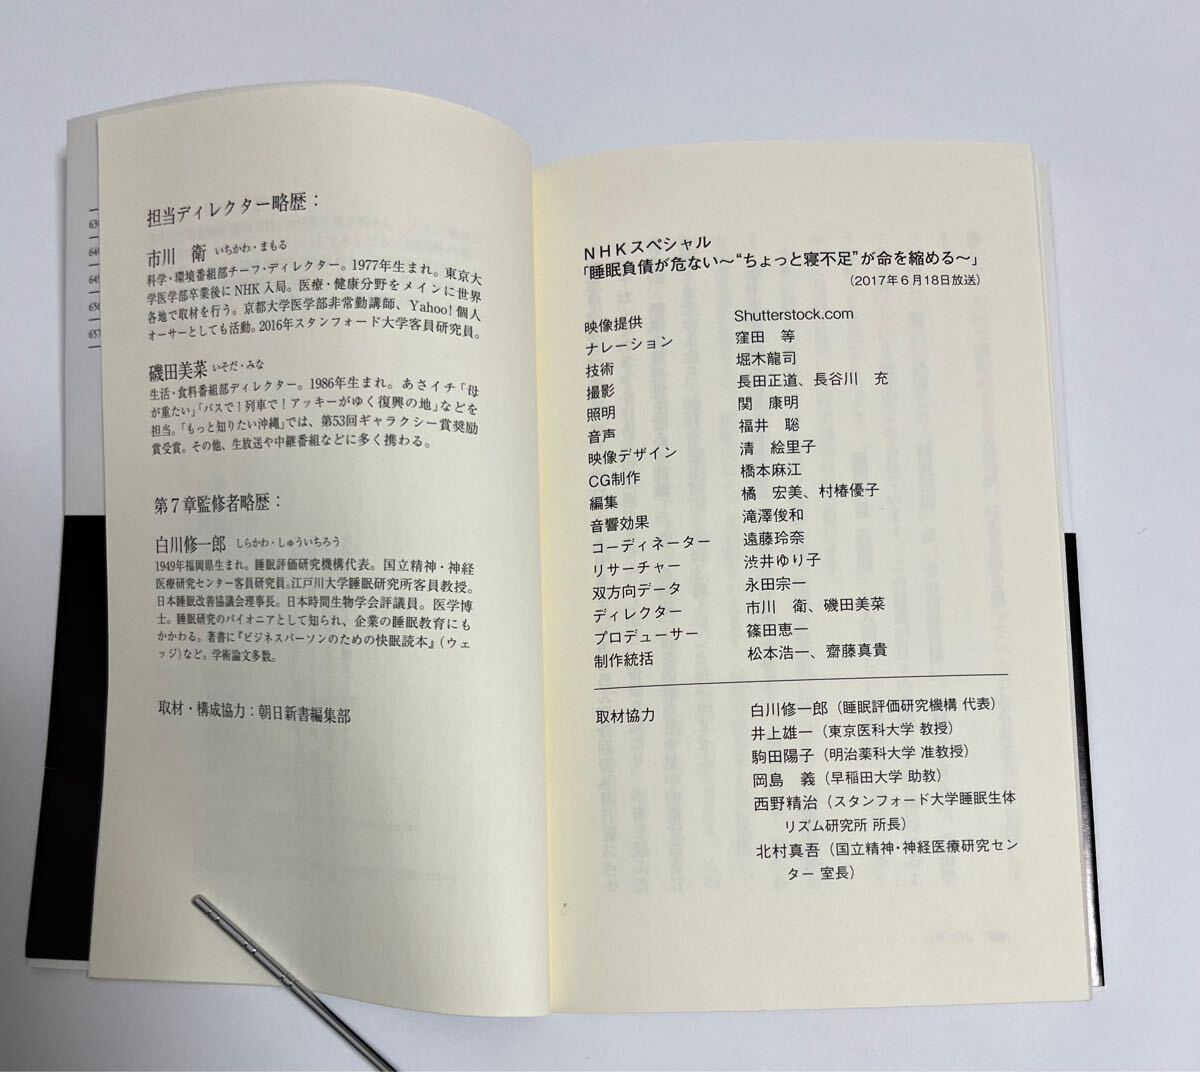 担当ディレクター略歴：
市川　衛 いちかわ・まもる
科学・環境番組部チーフ・ディレクター。1977年生まれ。東京大
学医学部卒業後にNHK入局。医療・健康分野をメインに世界
各地で取材を行う。京都大学医学部非常勤講師、Yahoo!個人
オーサーとしても活動。2016年スタンフォード大学客員研究員。
磯田美菜 いそだ・みな
生活・食料番組部ディレクター。1986年生まれ。あさイチ「母
が重たい」「バスで！列車で！アッキーがゆく復興の地」などを
担当。「もっと知りたい沖縄」では、第53回ギャラクシー賞奨励
賞受賞。その他、生放送や中継番組などに多く携わる。
第7章監修者略歴：
白川修一郎 しらかわ・しゅういちろう
1949年福岡県生まれ。睡眠評価研究機構代表。国立精神・神経
医療研究センター客員研究員。江戸川大学睡眠研究所客員教授。
日本睡眠改善協議会理事長。日本時間生物学会評議員。医学博
士。睡眠研究のパイオニアとして知られ、企業の睡眠教育にも
かかわる。著書に『ビジネスパーソンのための快眠読本』（ウェ
ッジ）など。学術論文多数。
取材・構成協力：朝日新書編集部
NHKスペシャル
「睡眠負債が危ない〜“ちょっと寝不足”が命を縮める〜」
（2017年6月18日放送）
映像提供　Shutterstock.com
ナレーション　窪田　等
技術　堀木龍司
撮影　長田正道、長谷川　充
照明　関　康明
音声　福井　聡
映像デザイン　清　絵里子
CG制作　橋本麻江
編集　橘　宏美、村椿優子
音響効果　滝澤俊和
コーディネーター　遠藤玲奈
リサーチャー　渋井ゆり子
双方向データ　永田宗一
ディレクター　市川　衛、磯田美菜
プロデューサー　篠田恵一
制作統括　松本浩一、齋藤真貴
取材協力　白川修一郎（睡眠評価研究機構 代表）
井上雄一（東京医科大学 教授）
駒田陽子（明治薬科大学 准教授）
岡島　義（早稲田大学 助教）
西野精治（スタンフォード大学睡眠生体
リズム研究所 所長）
北村真吾（国立精神・神経医療研究セン
ター 室長）